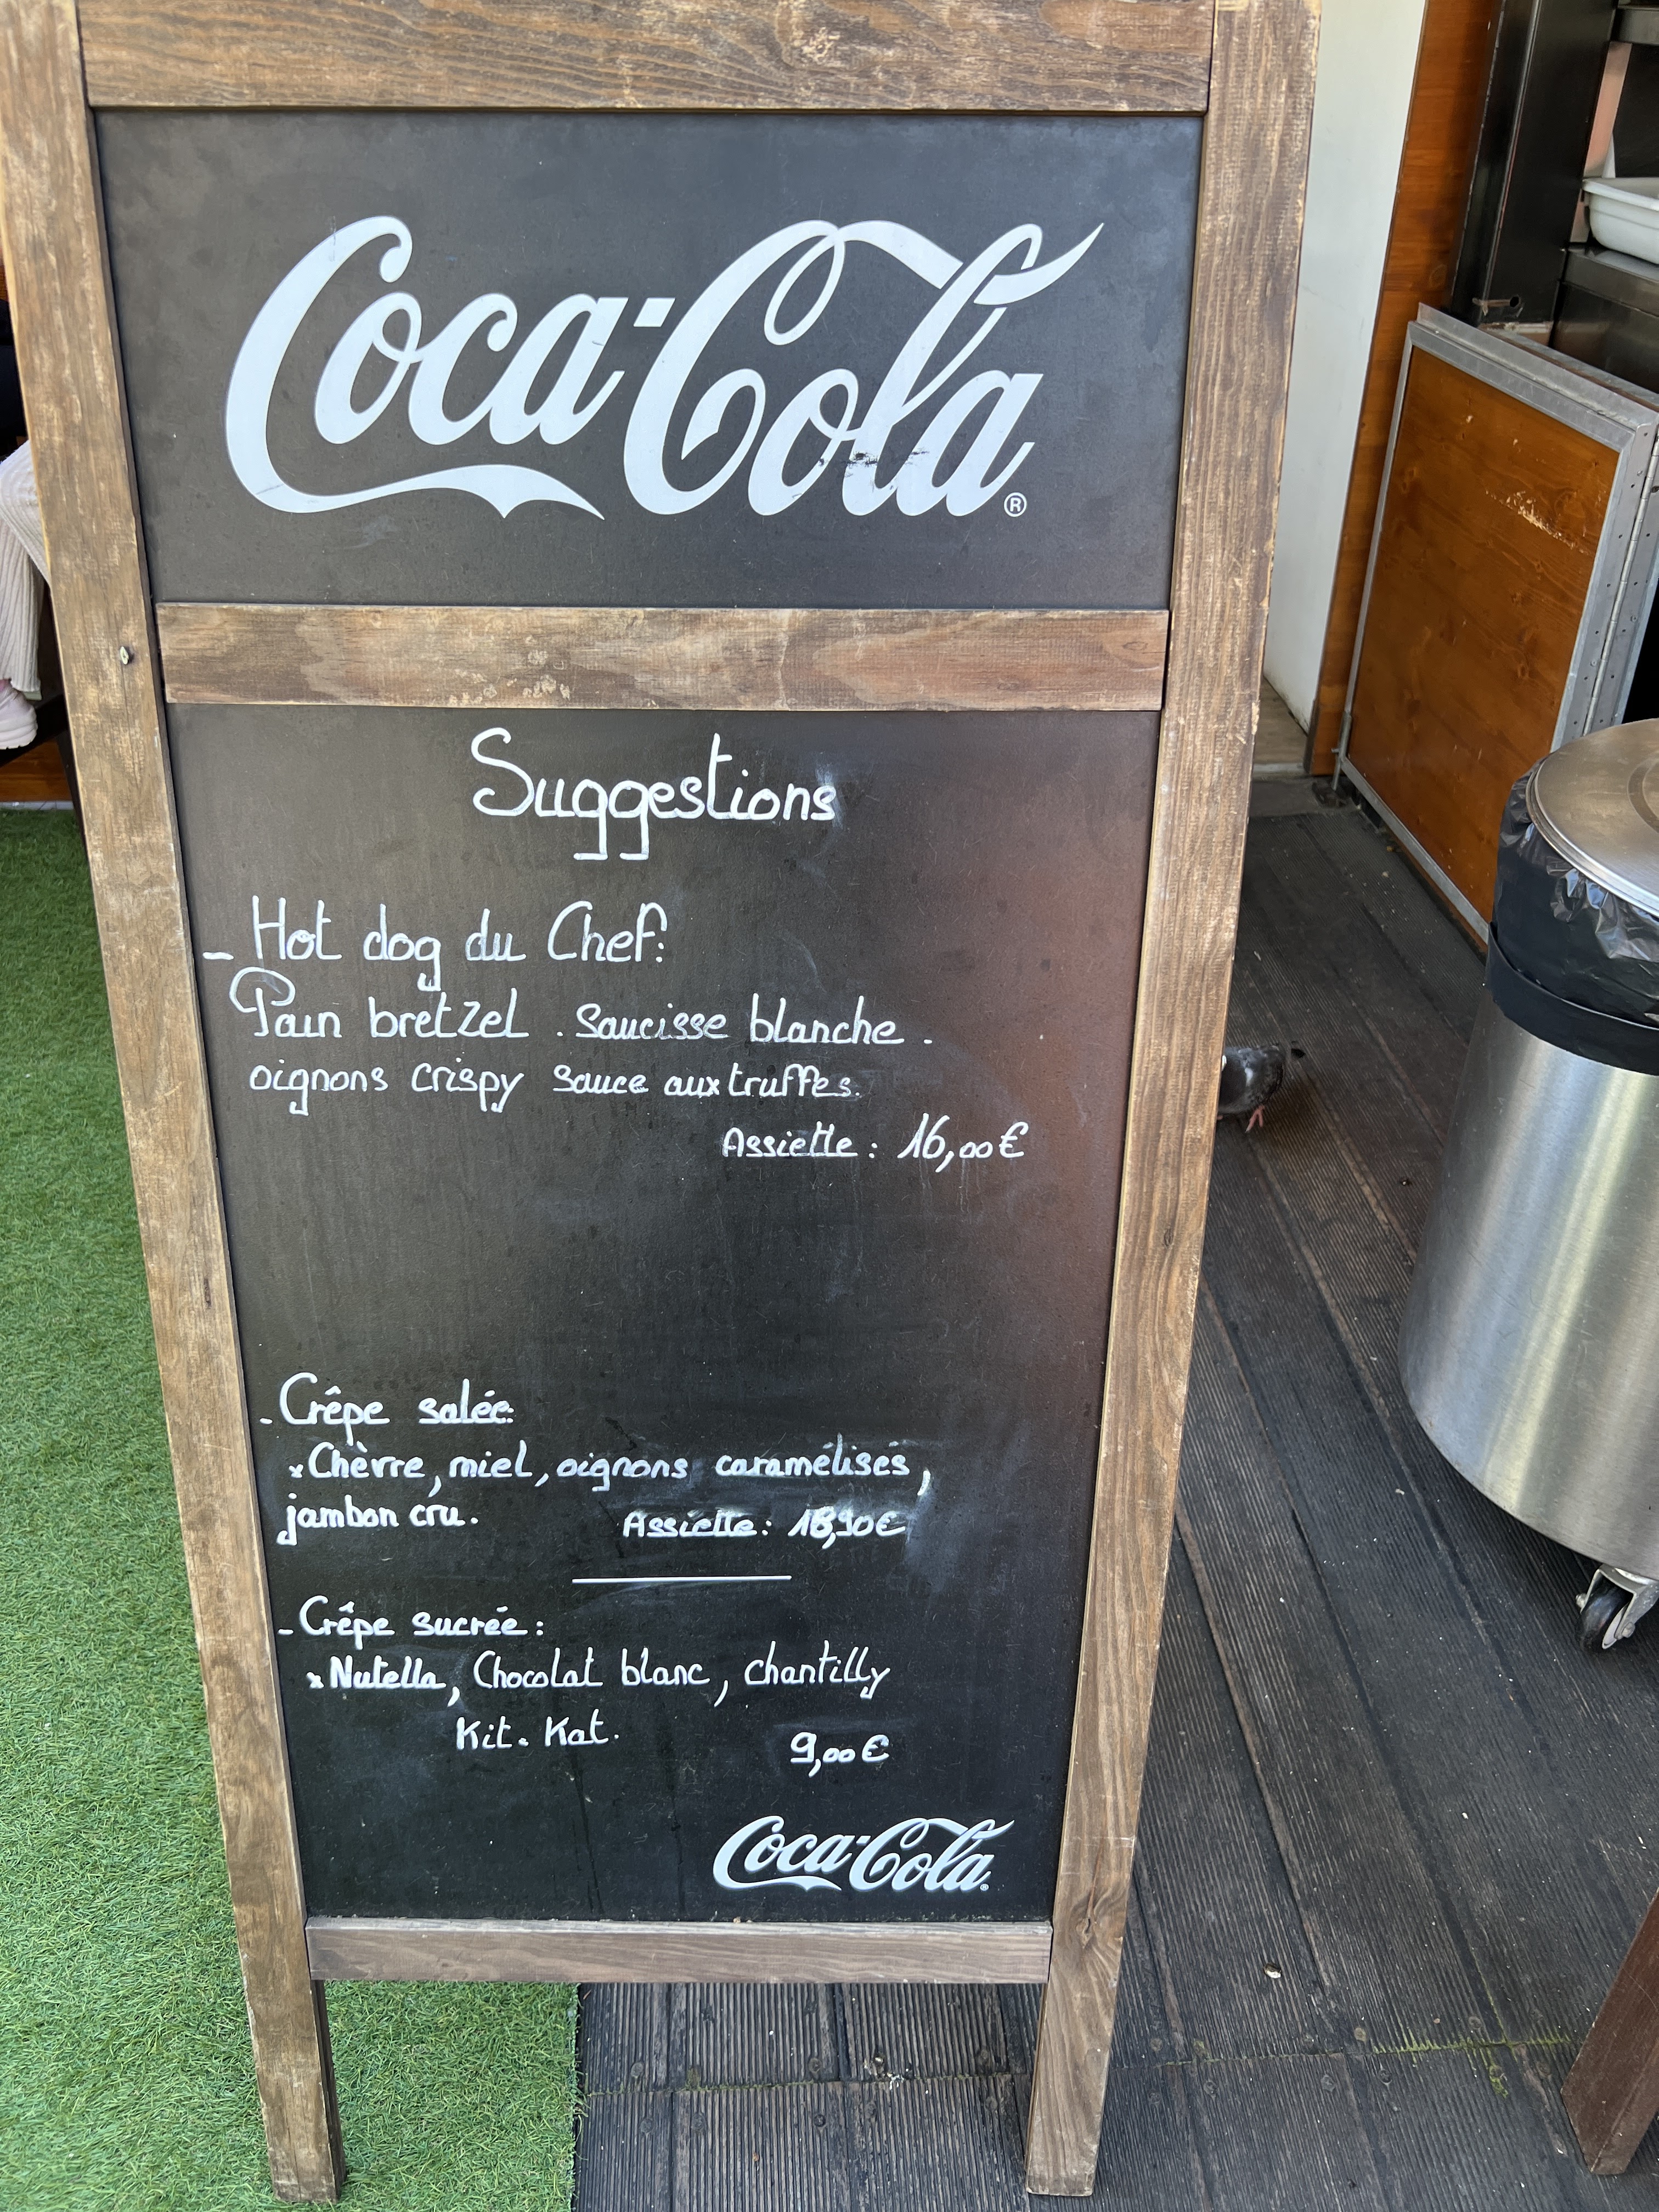 Coca-Cola ®
Suggestions
- Hot dog du Chef:
Pain bretzel . saucisse blanche .
oignons crispy sauce aux truffes.
Assiette : 16,00€
- Crêpe salée:
x Chèvre, miel, oignons caramélisés,
jambon cru. Assiette:
- Crêpe sucrée :
x Nutella, Chocolat blanc, chantilly
Kit. Kat.
9,00€
Coca-Cola